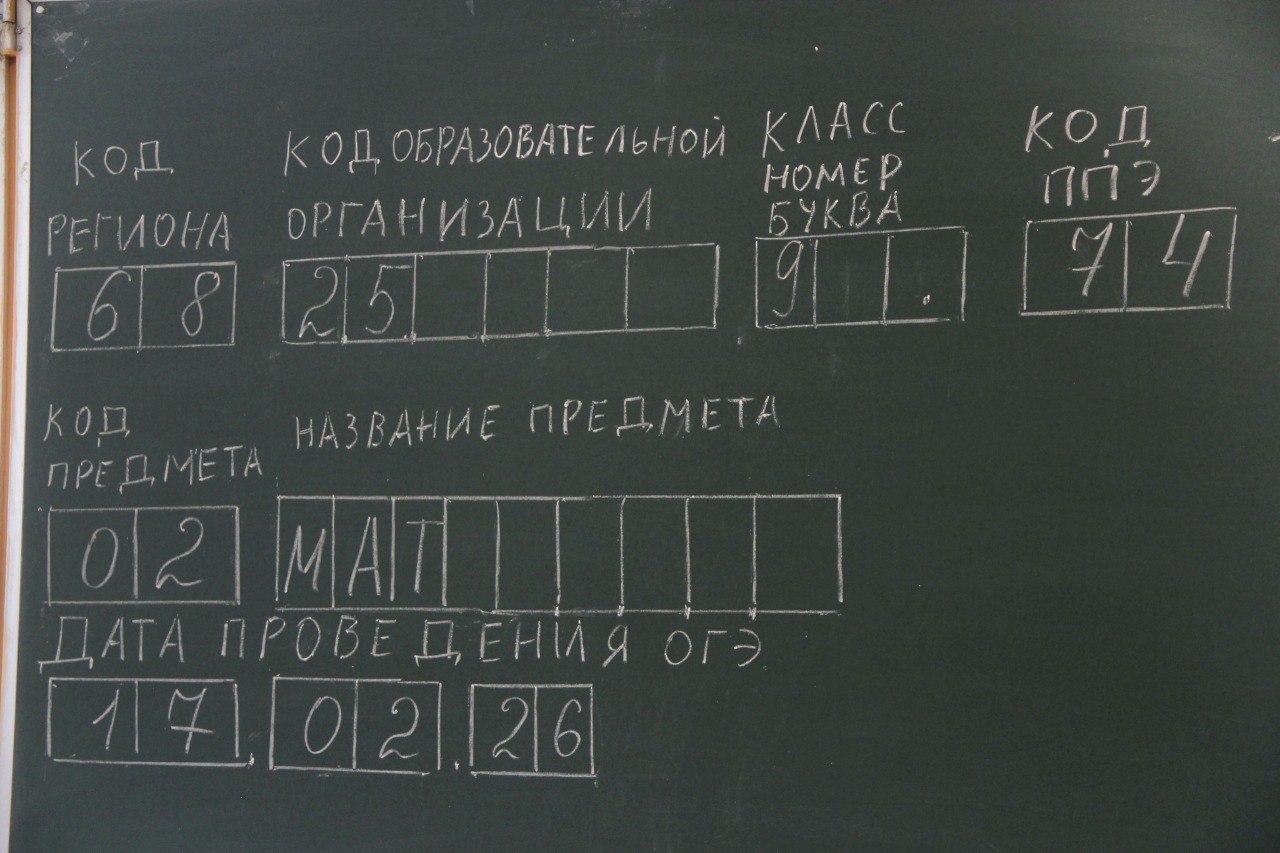 КОД
РЕГИОНА
68
КОД ОБРАЗОВАТЕЛЬНОЙ
ОРГАНИЗАЦИИ
25
КЛАСС
НОМЕР
БУКВА
9 .
КОД
ППЭ
74
КОД
ПРЕДМЕТА
02
НАЗВАНИЕ ПРЕДМЕТА
МАТ
ДАТА ПРОВЕДЕНИЯ ОГЭ
17.02.26